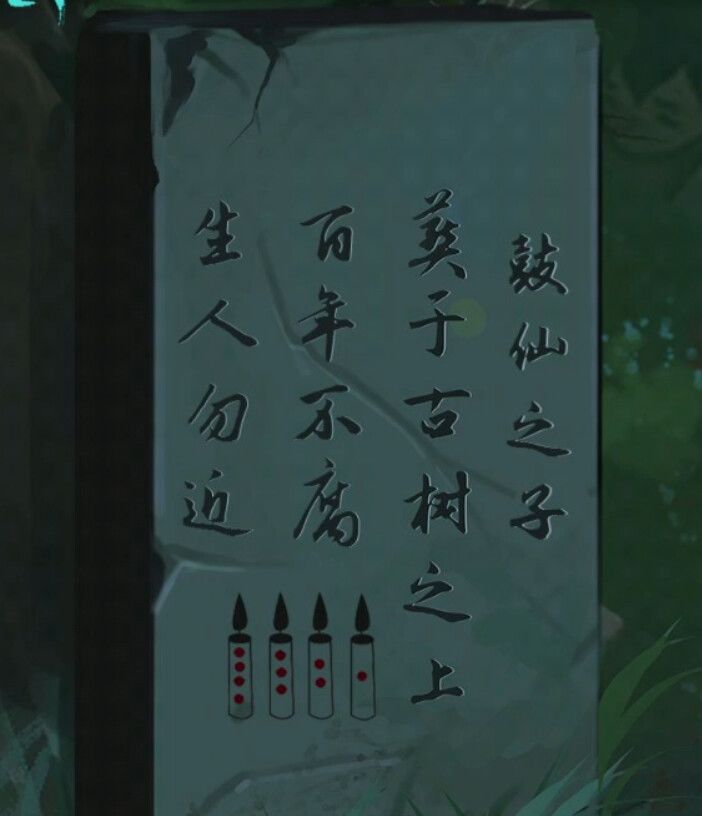 鼓仙之子
葬于古树之上
百年不腐
生人勿近